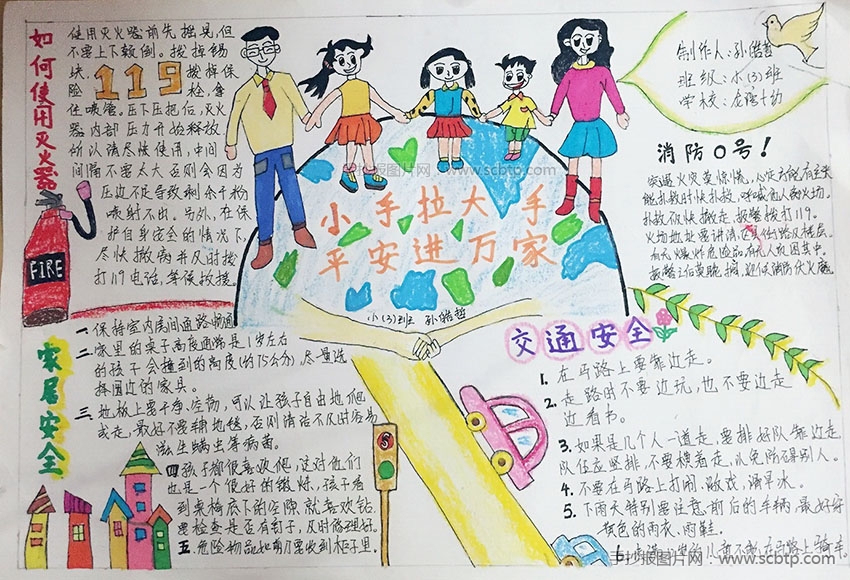 如何使用灭火器
使用灭火器前先摇晃,但
不要上下颠倒。拔掉锡
块、119拔掉保
险栓,拿
住喷管。压下压把后,灭火
器内部压力开始释放
所以请尽快使用,中间
间隔不要太大否则会因为
压边不足导致剩余干粉
喷射不出。另外,在保
护自身安全的情况下,
尽快撤离并及时拨
打119电话,等候救援。
FIRE
制作人:孙皓哲
班级:小(3)班
学校:
消防0号!
突遇火灾莫惊慌,
扑救的快扑救,呼喊他人离火场。
扑救不快撤走,报警拨打119。
火场地址要讲清,
有无爆炸危险品有无人被困其中。
小手拉大手
平安进万家
小(3)班 孙皓哲
家居安全
一、保持室内房间通路畅通
二、家里的桌子高度通常是1岁左右
的孩子会撞到的高度(约75公分),尽量选
择圆边的家具。
三、地板上要干净、空物,可以让孩子自由地爬
或走,最好不要铺地毯,否则清洁不及时容易
滋生螨虫等病菌。
四、孩子都很喜欢爬,这对他们
也是一个很好的锻炼,孩子看
到桌椅底下的空隙就喜欢钻
要检查是否有钉子,及时修理好。
五、危险物品如剪刀要收到柜子里。
交通安全
1、在马路上要靠边走。
2、走路时不要边玩,也不要边走
边看书。
3、如果是几个人一道走,要排好队靠边走
队伍应竖排,不要横着走,以免防碍别人。
4、不要在马路上打闹、游戏、滑旱冰。
5、下雨天特别要注意前后的车辆,最好穿
黄色的雨衣、雨鞋。
手抄报图片网:www.scbtp.com
手抄报图片网:www.scbtp.com